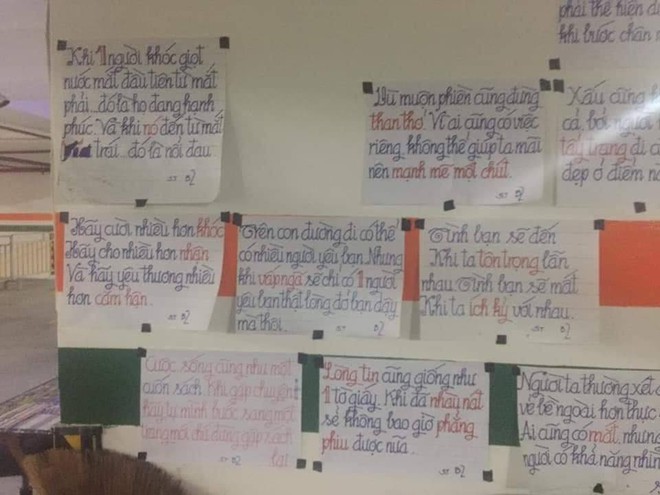 Khi 1 người khóc giọt
nước mắt đầu tiên từ mắt
phải...đó là họ đang hạnh
phúc. Và khi nó đến từ mắt
trái...đó là nỗi đau.
ST
phải thể hiện
khi bước chân
Dù muộn phiền cũng đừng
than thở. Vì ai cũng có việc
riêng, không thể giúp ta mãi
nên mạnh mẽ một chút.
ST
Xấu cũng
cả, bởi người
tẩy trang đi
đẹp ở điểm
Hãy cười nhiều hơn khóc
Hãy cho nhiều hơn nhận
Và hãy yêu thương nhiều
hơn căm hận.
ST
Trên con đường đi có thể
có nhiều người yêu bạn. Nhưng
khi vấp ngã sẽ chỉ có 1 người
yêu bạn thật lòng đỡ bạn dậy
mà thôi.
ST
Tình bạn sẽ đến
Khi ta tôn trọng lẫn
nhau. Tình bạn sẽ mất
Khi ta ích kỷ với nhau.
ST
Cuộc sống cũng như một
cuốn sách. Khi gặp chuyện
hãy tự mình bước sang một
trang mới chứ đừng gấp sách
lại
Lòng tin cũng giống như
1 tờ giấy. Khi đã nhàu nát
sẽ không bao giờ phẳng
phiu được nữa.
ST
Người ta thường xét
vẻ bề ngoài hơn thực
Ai cũng có mắt, nhưng
người có khả năng nhìn